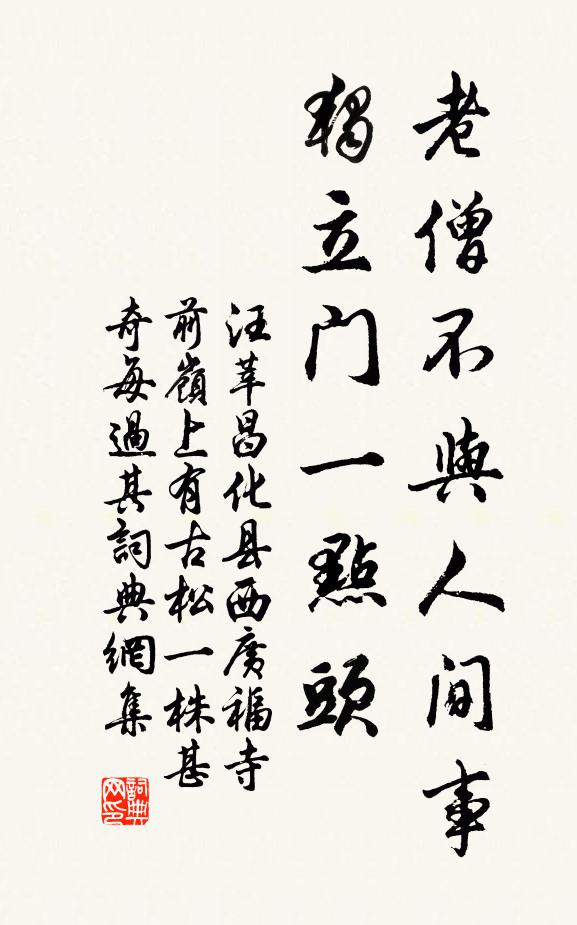 老僧不與人間事
獨立門一點頭
汪莘昌化县西廣福寺
前嶺上有古松一株甚
奇每過其詞典網集
詞典
网印